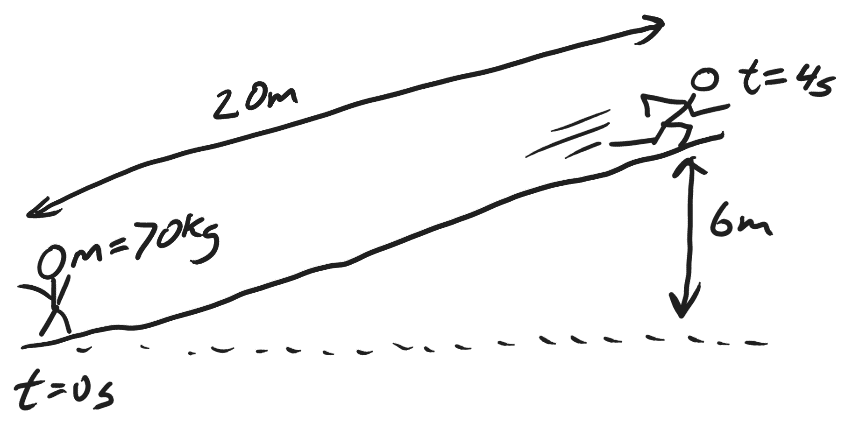 20m
t=4s
m=70kg
6m
t=0s